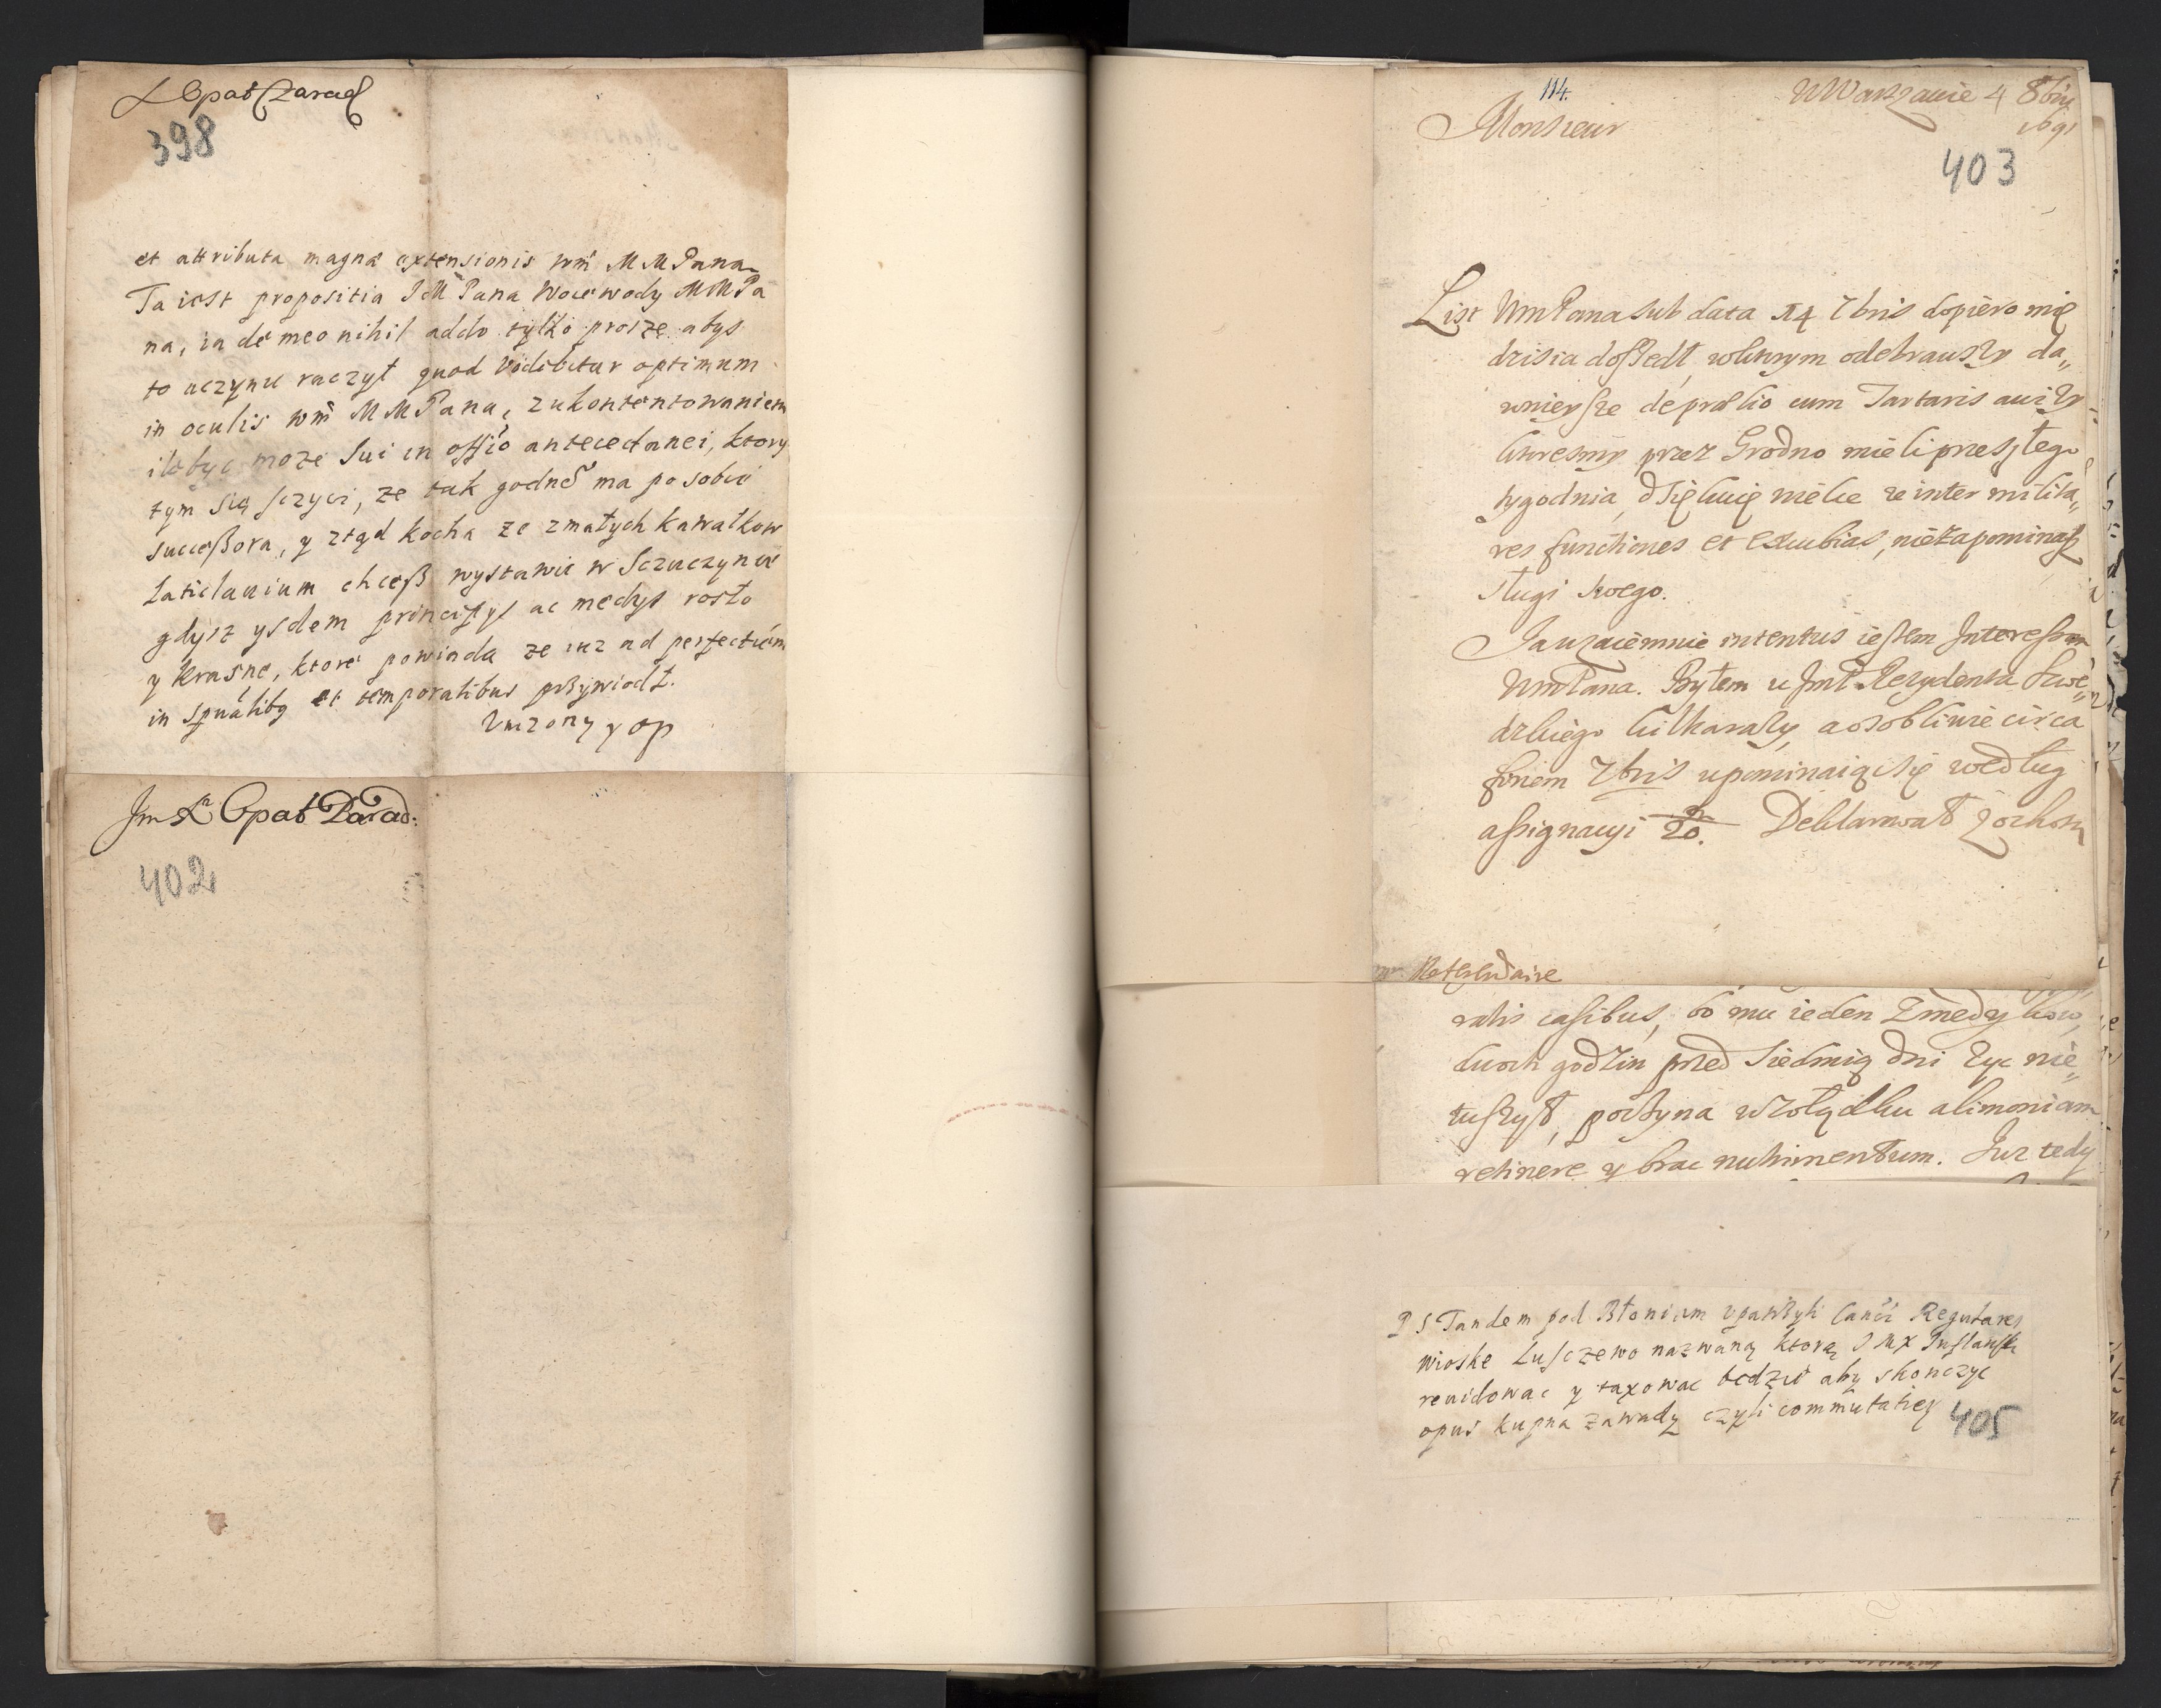 Opat Parad
398
et attributa magnae extensionis wm MMPana
Ta iest propositia JM Pana Woiewody MMPa
na, ia de meo nihil addo tylko prosze abys
to uczynic raczył quod videbitur optimum
in oculis wm MMPana, z ukontentowaniem
ile byc moze sui in offio antecedanei, ktory
tym się sczyci, ze tak godne ma po sobie
successora, y ztąd kocha ze zmałych kawałkow
Laticlauium chceß wystawic w Sczuczynie
gdysz ysdem principys ac medys rosło
y Krasne, ktore powiada ze iuz ad perfectiem
in spualibg et temporalibus przywiodł.
Unizony y op
Jm X Opat Parad:
402
114.
W Warszawie 4 8bris
1691
Monsieur
403
List WmPana sub data 14 7bris dopiero mię
dzisia doszedł, wktorym odebrawszy da„
wniejsze de prælio cum Tartaris awizy
ktoresmy przez Grodno mieli przeszłego
tygodnia, dziękuię wielce ze inter milita„
res functiones et excubias, niezapominasz
sługi swego.
Ja wzaiemnie intentus iestem Interessom
WmPana. Byłem u Jmci Rezydenta Szwe„
dzkiego kilkarazy, a osobliwie circa
finem 7bris upominaiąc się według
assignacyi 20. Deklarował
Referendaire
ralis casibus, bo mu ieden zmedykow,
dwoch godzin przed siedmią dni zyc nie„
tuszył, poczyna wzołądku alimoniam
retinere y brac nutrimentum. Juz tedy
PS Tandem pod Błoniem upatrzyli Canci Regulares
wioske Lusczewo nazwaną ktorą JMX Inflansk
rewidowac y taxowac bedzie aby skonczyc
opus kupna zawady czyli commutatiey
405